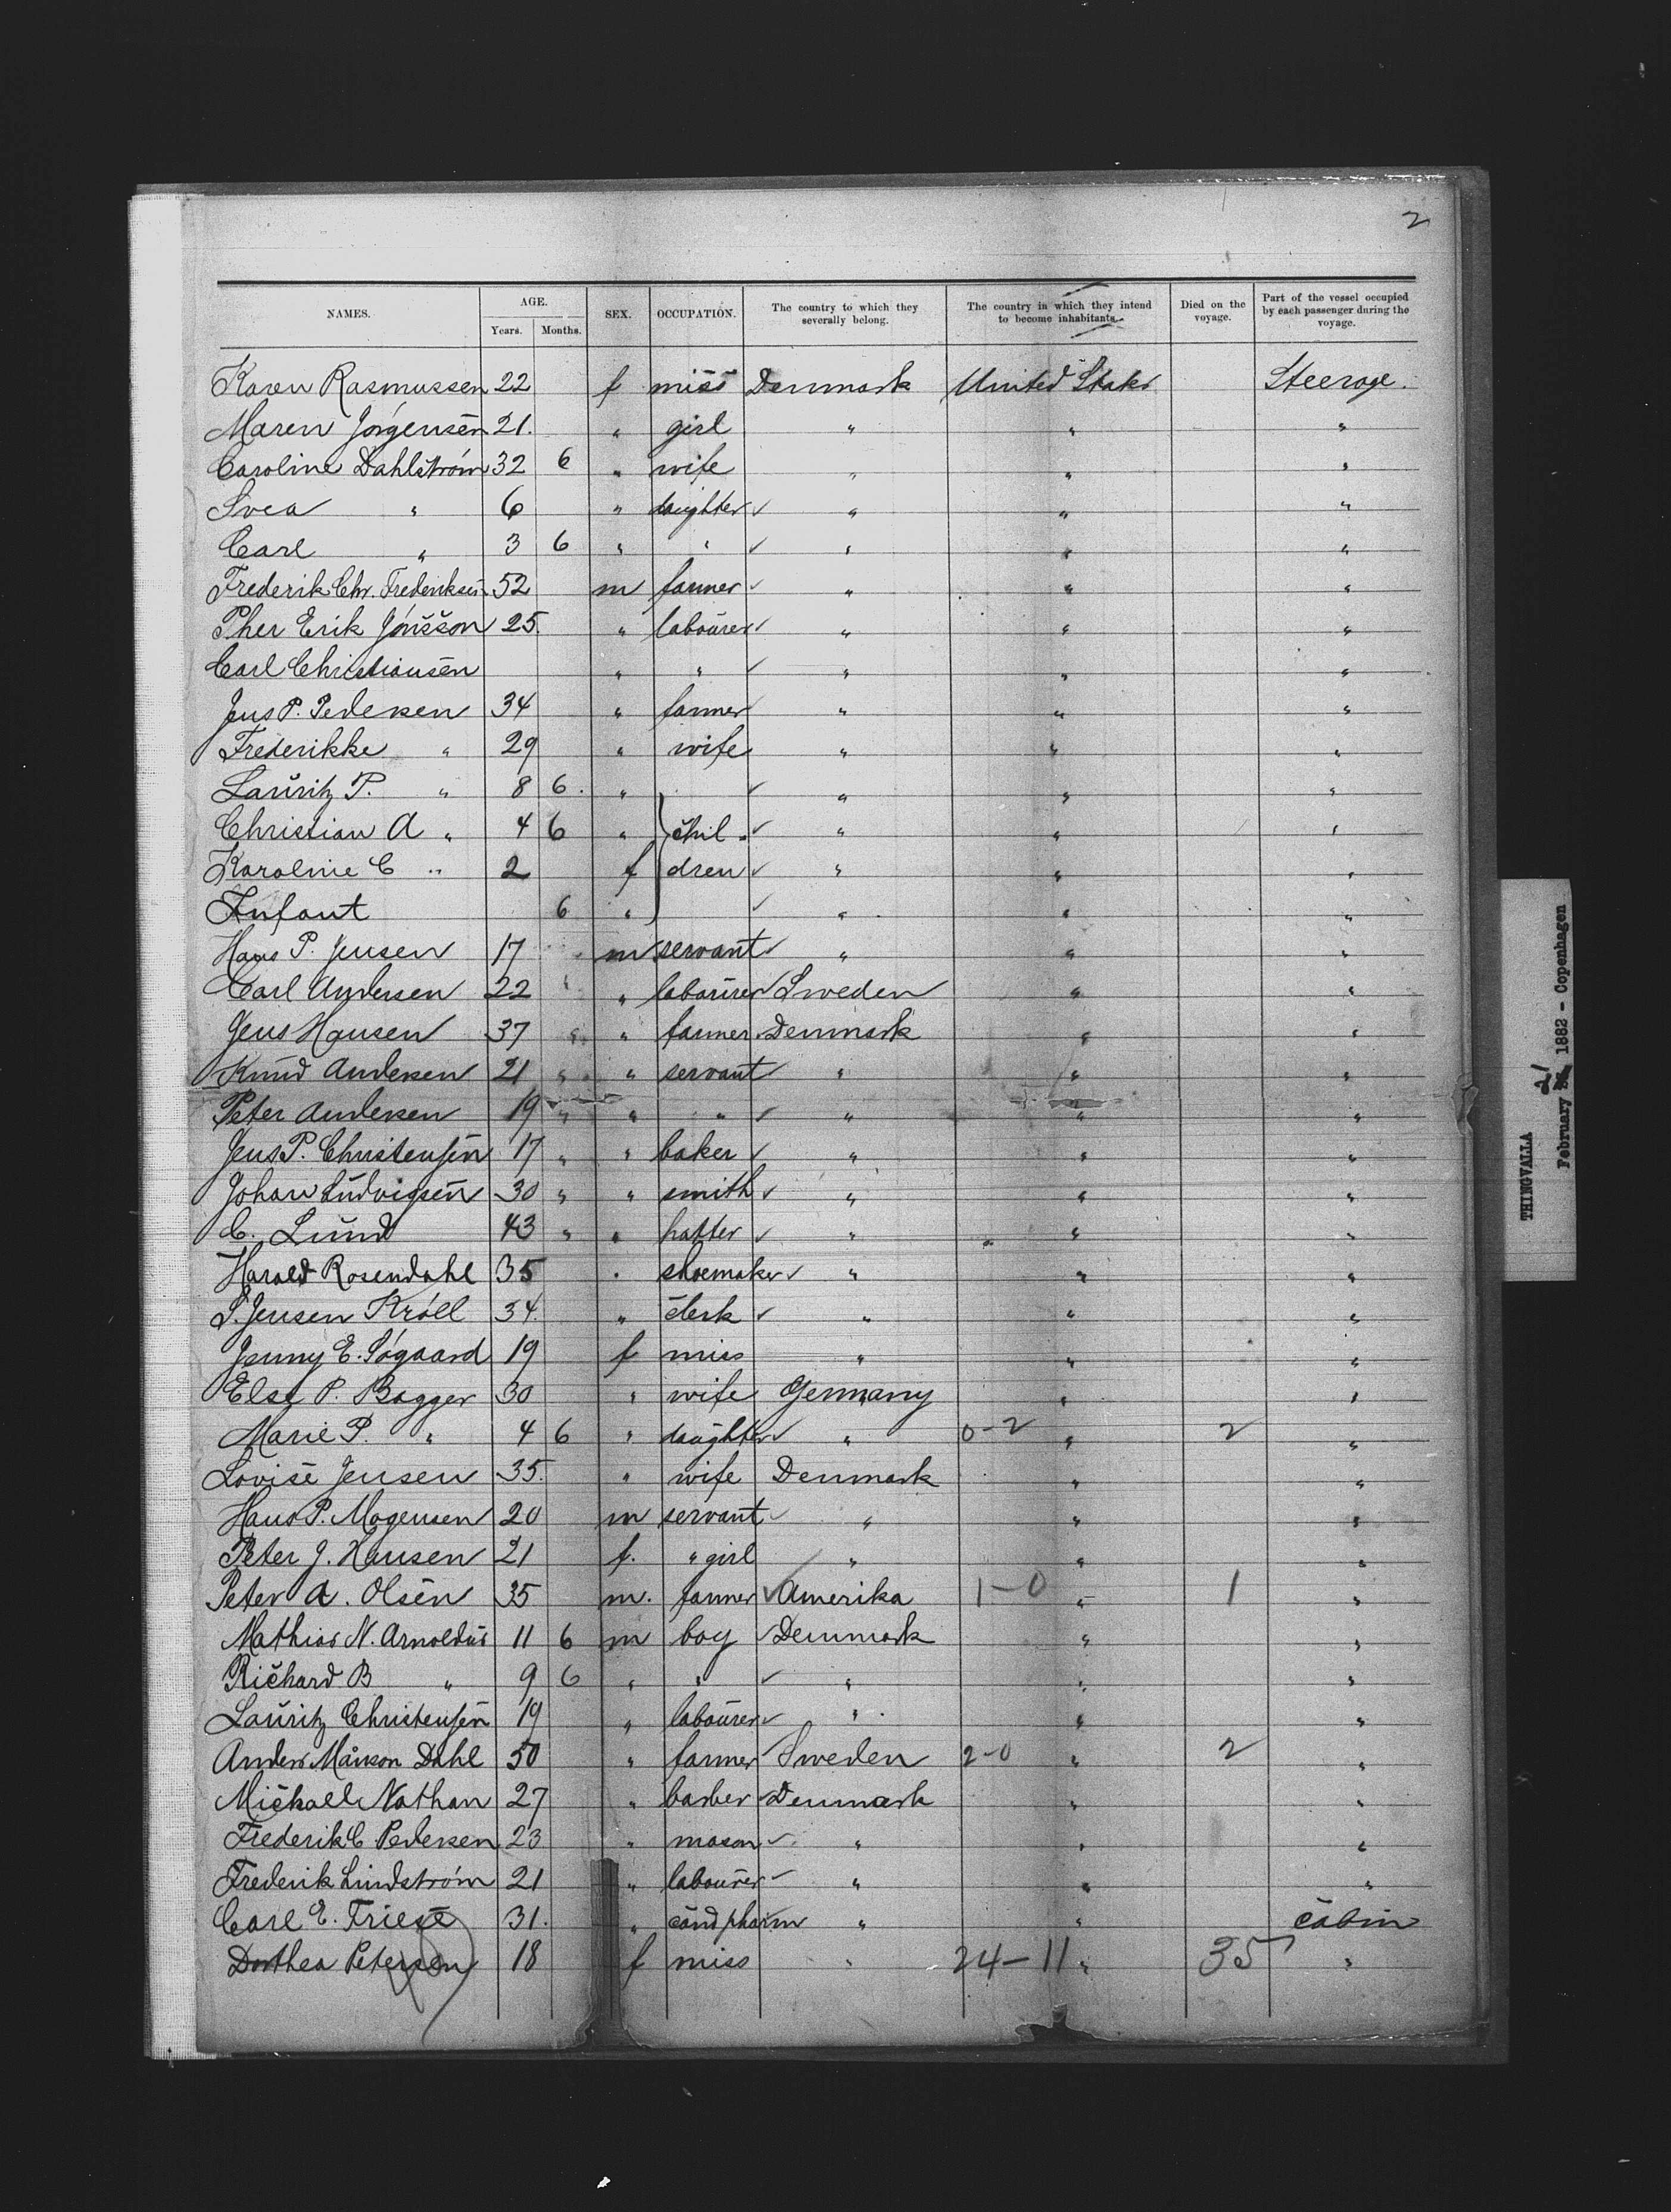 2
NAMES. AGE. Years. Months. SEX. OCCUPATION. The country to which they severally belong. The country in which they intend to become inhabitants. Died on the voyage. Part of the vessel occupied by each passenger during the voyage.
Karen Rasmussen 22 f miss Denmark United States Steerage.
Maren Jørgensen 21. " girl " " "
Caroline Dahlstrøm 32 6 " wife " " "
Svea " 6 " daughter " " "
Carl " 3 6 " " " " "
Frederik Chr. Frederiksen 52 m farmer " " "
Pher Erik Jönsson 25. " labourer " " "
Carl Christiansen " " " " "
Jens P. Pedersen 34 " farmer " " "
Frederikke " 29 " wife " " "
Lauritz P. " 8 6. " " " "
Christian A " 4 6 " chil- " " "
Karoline C " 2 f dren " " "
Infant 6 " " " "
Hans P. Jensen 17 m servant " " "
Carl Andersen 22 " " labourer Sweden " "
Jens Hansen 37 " " farmer Denmark " "
Knud Andersen 21 " " servant " " "
Peter Andersen 19 " " " " " "
Jens P. Christensen 17 " " baker " " "
Johan Ludvigsen 30 " " smith " " "
C. Lund 43 " " hatter " " "
Harald Rosendahl 35 " shoemaker " " "
S. Jensen Krøll 34. " clerk " " "
Jenny E. Søgaard 19 f miss " " "
Else P. Bagger 30 " wife Germany " "
Marie P. " 4 6 " daughter " 0-2 " 2 "
Lovise Jensen 35. " wife Denmark " "
Hans P. Mogensen 20 m servant " " "
Peter J. Hansen 21 f. " girl " " "
Peter A. Olsen 35 m. farmer Amerika 1-0 " 1 "
Mathias N. Arnoldus 11 6 m boy Denmark " "
Richard B " 9 6 " " " " "
Lauritz Christensen 19 " labourer " " "
Anders Månson Dahl 50 " farmer Sweden 2-0 " 2 "
Michael Nathan 27 " barber Denmark " "
Frederik C Pedersen 23 " mason " " "
Frederik Lindstrøm 21 " labourer " " "
Carl E. Friese 31. " cand pharm " " cabin
Dorthea Petersen 18 f miss " 24-11 " 35 "
THINGVALLA
February 21 1882 - Copenhagen